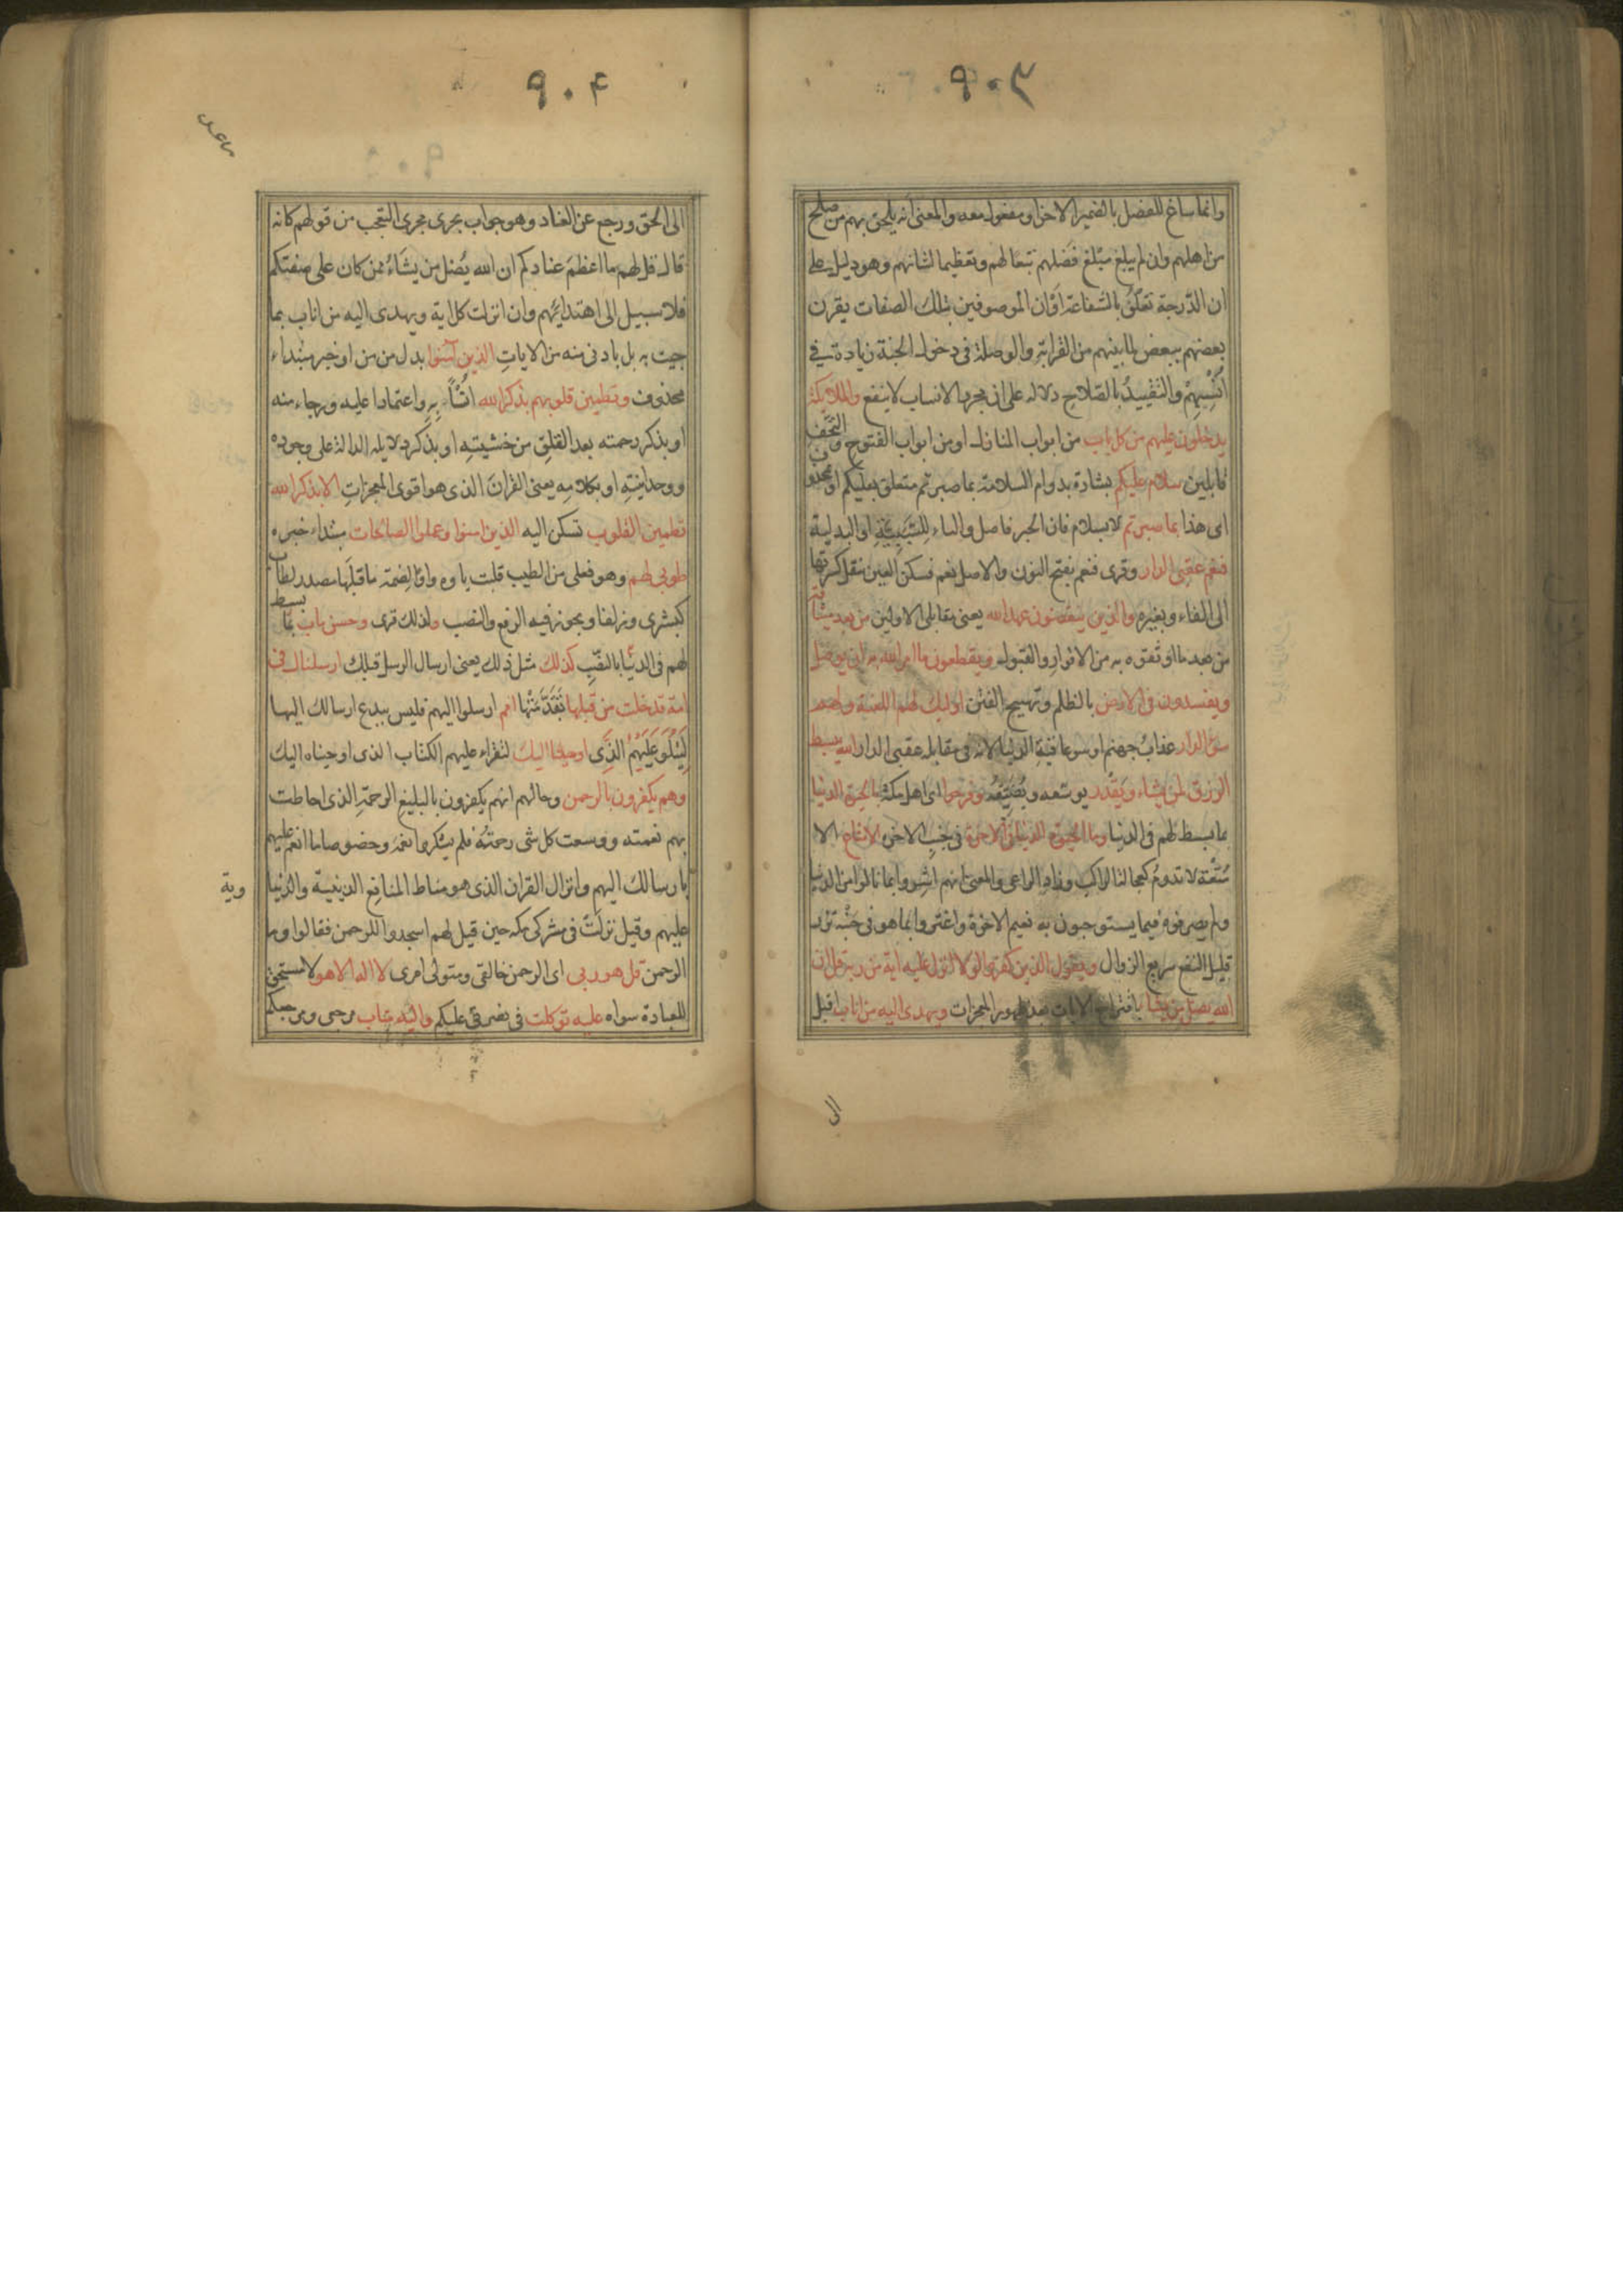 ٩٠٣
وانما ساغ للفصل بالضمير الاخر او مفعول معه والمعنى انه يلحق بهم من صلح
من اهلهم وان لم يبلغ مبلغ فضلهم تبعا لهم وتعظيما لشانهم وهو دليل على
ان الدّرجة تعلو بالشفاعة او ان الموصوفين بتلك الصفات يقرن
بعضهم ببعض لما بينهم من القرابة والوصلة فى دخول الجنة زيادة فى
اُنْسِهِمْ والتَقْييدُ بالصّلاحِ دلاله على ان مجرد الانساب لا ينفع والملايكة
يدخلون عليهم من كل باب من ابواب المنازل او من ابواب الفتوح والتحف
قايلين سلام عليكم بشارة بدوام السلامة بما صبرتم متعلق بعليكم او بمحذوف
اى هذا بما صبرتم لا بسلام فان الخبر فاصل والباء لِلسَّبَبِيَّةِ او البدلية
فنعم عقبى الدار وقرى فنعم بفتح النون والاصل نعم فسكن العين بنقل كسرتها
الى الفاء وبغيره والذين ينقضون عهد الله يعنى مقابلى الاولين من بعد ميثاقه
من بعد ما اوثقوه به من الاقرار والقبول ويقطعون ما امر الله به ان يوصل
ويفسدون فى الارض بالظلم وتهييج الفتن اوليك لهم اللعنة ولهم
سوء الدار عذاب جهنم او سوء عاقبة الدنيا لانه فى مقابلة عقبى الدار الله يبسط
الرزق لمن يشاء ويقدر يوسّعه ويُضَيِّقُه وفرحوا اى اهل مكة بالحيوة الدنيا
بما بسط لهم فى الدنيا وما الحيوة الدنيا فى الاخرة فى جنب الاخرة الا متاع الا
مُتْعة لا تدومُ كعجالة الراكب وزاد الراعى والمعنى انهم اشروا بما نالوا من الدنيا
ولم يصرفوه فيما يستوجبون به نعيم الاخرة واغتروا بما هو فى جنبه نزر
قليل النفع سريع الزوال ويقول الذين كفروا لولا انزل عليه اية من ربه قل ان
الله يضل من يشا باقتراح الايات بعد ظهور المعجزات ويهدى اليه من اناب اقبل
الى
٩٠٤
الى الحق ورجع عن العناد وهو جواب يجرى مجرى التعجب من قولهم كانه
قال قل لهم ما اعظم عنادكم ان الله يُضل من يشاءُ ممن كان على صفتكم
فلا سبيل الى اهتدائهم وان انزلت كل اية ويهدى اليه من اناب بما
جيت به بل بادنى منه من الاياتِ الذين آمنوا بدل من من او خبر مبتداء
محذوف وتطمين قلوبهم بذكر الله اُنْساً بِه واعتمادا عليه ورجاء منه
او بذكر رحمته بعد القلق من خشيته او بذكر دلايله الدالة على وجوده
ووحدانيته او بكلامه يعنى القران الذى هو اقوى المعجزاتِ الا بذكر الله
تطمين القلوب تسكن اليه الذين امنوا وعملوا الصالحات مبتداء خبره
طوبى لهم وهو فعلى من الطيب قلبت ياوه واوًا لضمة ما قبلها مصدر لطاب
كبشرى وزلفا ويجوز فيه الرفع والنصب ولذلك قرى وحسن ماب بما بسط
لهم فى الدنيا بالنصب كذلك مثل ذلك يعنى ارسال الرسل قبلك ارسلناك فى
امة قد خلت من قبلها تَقَدَّمَتْها امم ارسلوا اليهم فليس ببدع ارسالك اليها
لِتَتْلُوَ عَلَيْهِمُ الَّذِى اوحينا اليك لتقراء عليهم الكتاب الذى اوحيناه اليك
وهم يكفرون بالرحمن وحالهم انهم يكفرون بالبليغ الرحمةِ الذى احاطت
بهم نعمته ووسعت كل شى رحمتُه فلم يشكروا نعمه وخصوصا ما انعم عليهم
بارسالك اليهم وانزال القران الذى هو مناط المنافع الدينية والدنيا
وية
عليهم وقيل نزلت فى مشركى مكه حين قيل لهم اسجدوا للرحمن فقالوا وما
الرحمن قل هو ربى اى الرحمن خالقى ومتولى امرى لا اله الا هو لا مستحق
للعبادة سواه عليه توكلت فى نصرتى عليكم واليه متاب مرجعى ومرجعكم